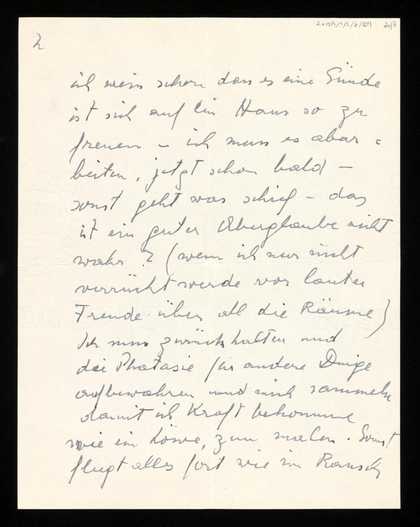 2
ich weis schon das es eine Sünde
ist sich auf ein Haus so zu
freuen – ich muss es abar =
beiten, jetzt schon bald –
sonst geht was schief – das
ist ein guter Aberglaube nicht
wahr? (wenn ich nur nicht
verrückt werde vor lauter
Freude über all die Räume)
Ich muss zurückhalten und
die Phatasie für andere Dinge
aufbewahren und mich sammeln
damit ich Kraft bekomme
wie ein Löwe, zum malen. Sonst
fliegt alles fort wie im Rausch